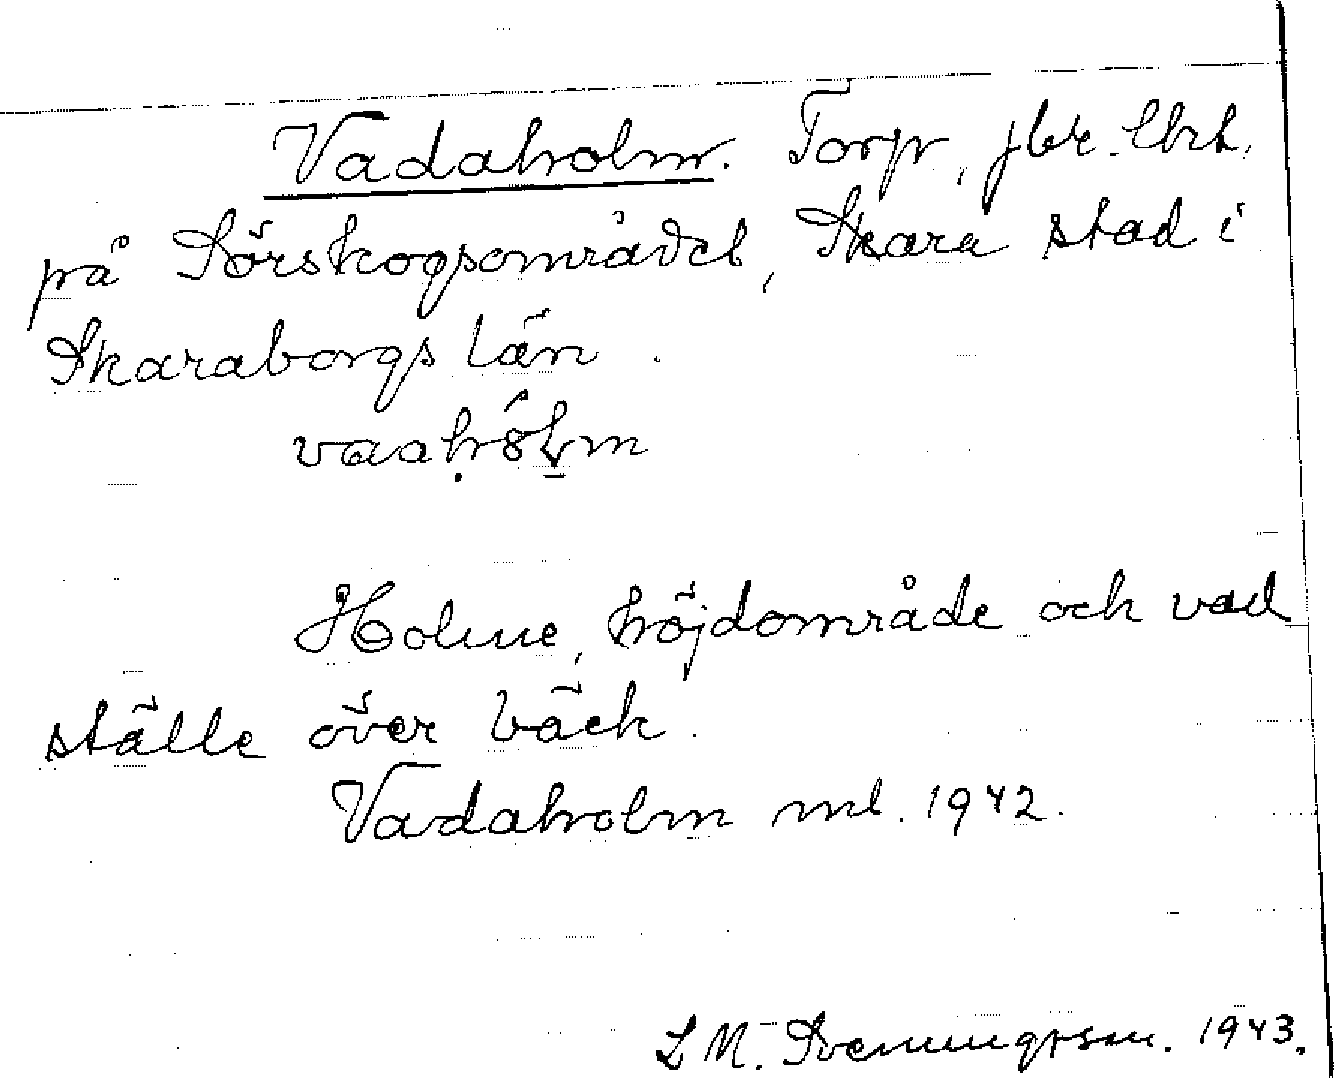 Vadaholm. Torp, jbr. lht.
på Sörskogsområdet, Skara stad i
Skaraborgs län.
Holme, höjdområde och vad
ställe över bäck.
Vadaholm ml. 1942.
L M. Svenungsson. 1943.